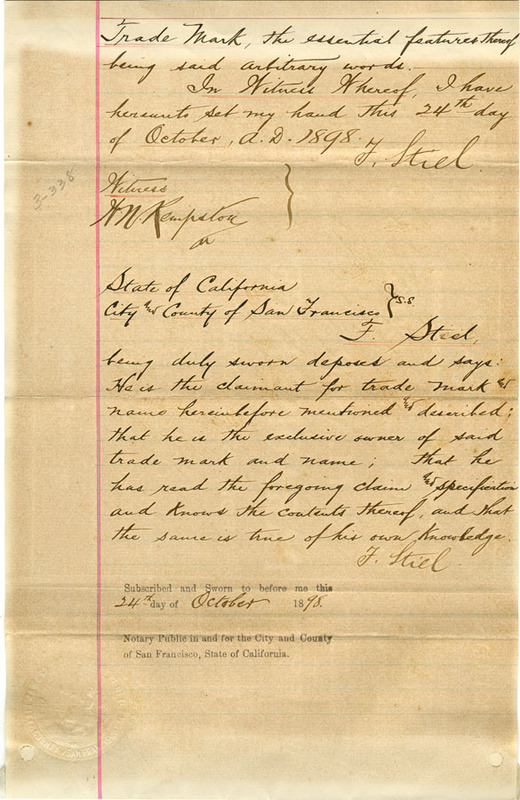 Trade Mark, the essential features thereof
being said arbitrary words.
In Witness Whereof, I have
hereunto set my hand this 24th day
of October, A.D. 1898.
F. Stiel.
3-338
Witness
H N. Kempston
State of California
City and County of San Francisco } S.S.
F. Stiel,
being duly sworn deposes and says:
He is the claimant for trade mark and
name hereinbefore mentioned and described;
that he is the exclusive owner of said
trade mark and name; that he
has read the foregoing claim and specification
and knows the contents thereof, and that
the same is true of his own knowledge.
F. Stiel
Subscribed and Sworn to before me this
24th day of October 1898.
Notary Public in and for the City and County
of San Francisco, State of California.